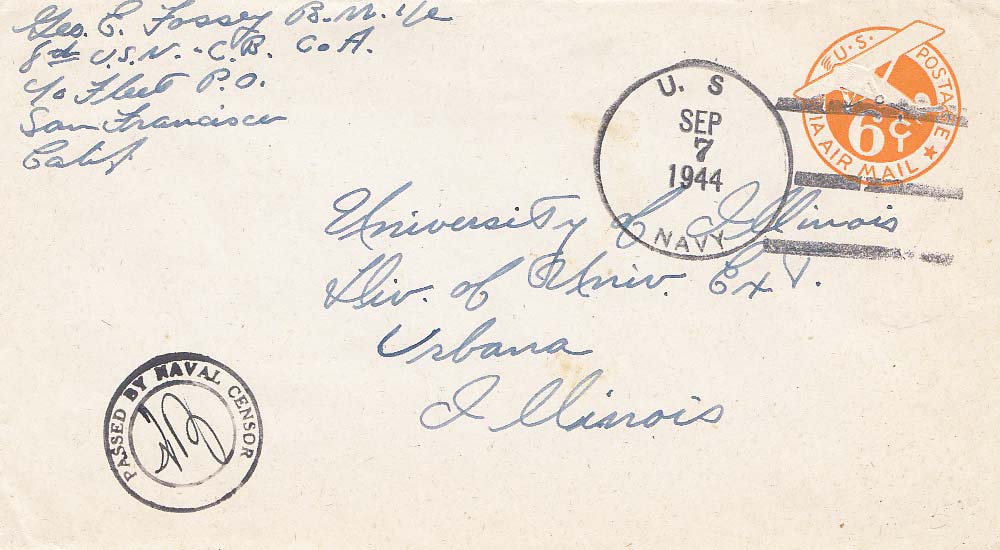 Geo. E. Fossey B.M. 1/c
8th U.S.N. - C.B. Co A.
c/o Fleet P.O.
San Francisco
Calif
U.S. POSTAGE
6¢
VIA AIR MAIL
U. S
SEP
7
1944
NAVY
University of Illinois
Div. of Univ. Ext.
Urbana
Illinois
PASSED BY NAVAL CENSOR